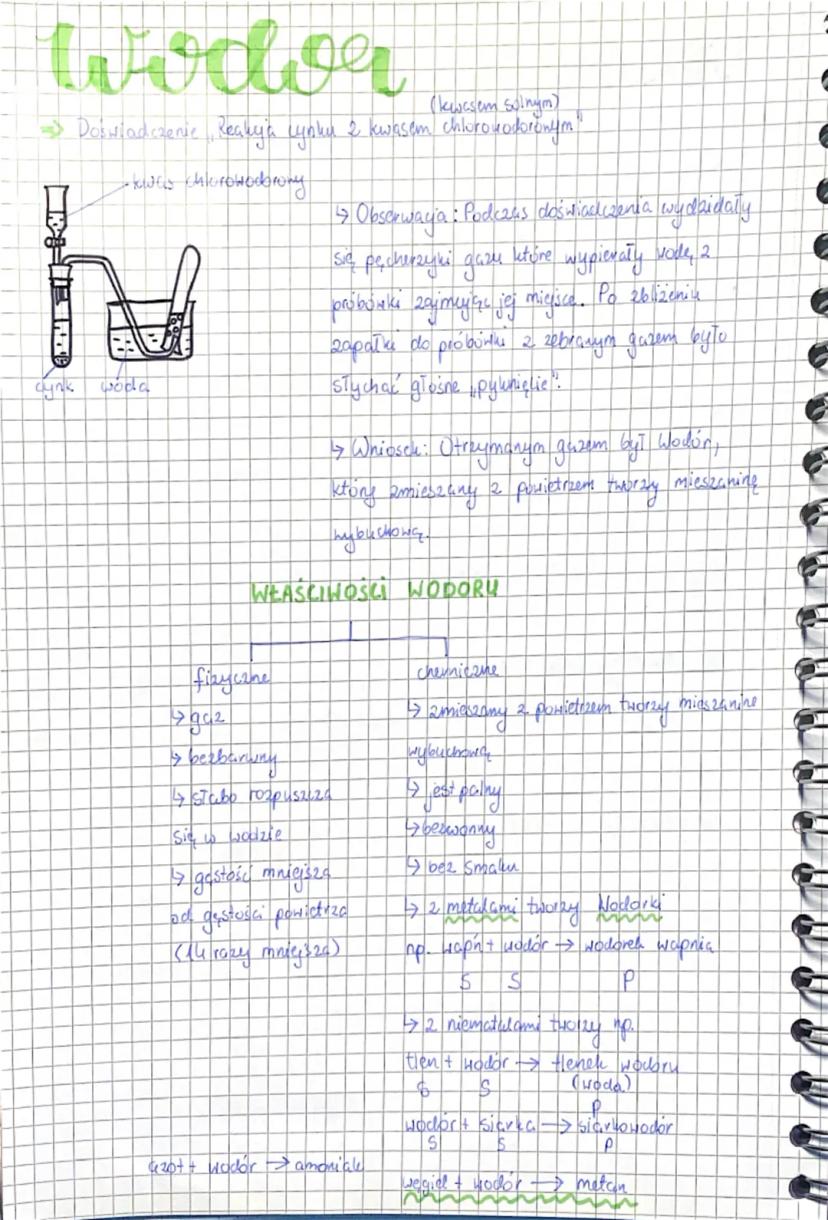 Wodór
(kwasem solnym)
⇒ Doświadczenie „Reakcja cynku z kwasem chlorowodorowym"
kwas chlorowodorowy
cynk woda
↳ Obserwacja: Podczas doświadczenia wydzielały
się pęcherzyki gazu które wypierały wodę z
próbówki zajmując jej miejsce. Po zbliżeniu
zapałki do próbówki z zebranym gazem było
słychać głośne „pyknięcie".
↳ Wniosek: Otrzymanym gazem był Wodór,
który zmieszany z powietrzem tworzy mieszaninę
wybuchową.
WŁAŚCIWOŚCI WODORU
fizyczne
↳ gaz
↳ bezbarwny
↳ słabo rozpuszcza
się w wodzie
↳ gęstość mniejsza
od gęstości powietrza
(14 razy mniejsza)
chemiczne
↳ zmieszany z powietrzem tworzy mieszanine
wybuchową
↳ jest palny
↳ bezwonny
↳ bez smaku
↳ z metalami tworzy Wodorki
np. wapń + wodór → wodorek wapnia
S S P
↳ z niemetalami tworzy np.
tlen + wodór → tlenek wodoru
S S (woda)
P
wodór + siarka → siarkowodór
S S P
azot + wodór → amoniak
węgiel + wodór → metan